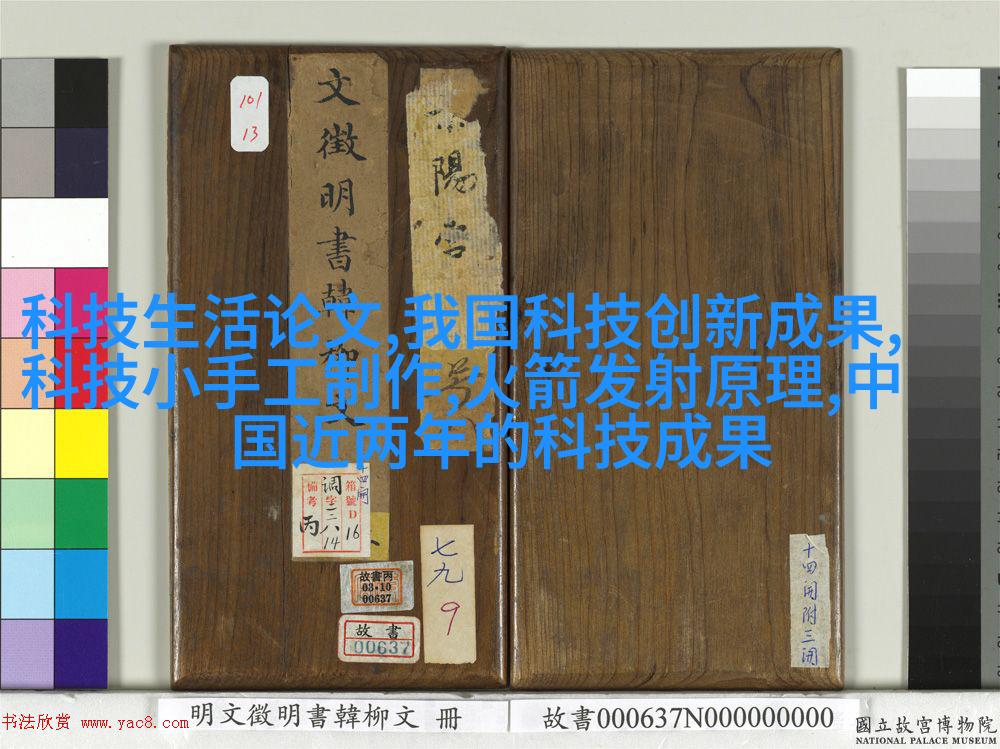 101
13
文徵明書韓柳文
陽宮
科技生活论文,我国科技创新成果,
科技小手工制作,火箭发射原理,中
国近两年的科技成果
十四開
箱號D
16
調字三八
14
備考
丙
故書丙
03·10
00637
故書
00637
七九
9
十四開附三開
明文徵明書韓柳文 冊
故書000637N000000000
國立故宮博物院
NATIONAL PALACE MUSEUM
书法欣赏 www.yac8.com